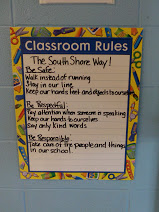 Classroom Rules
The South Shore Way!
Be Safe:
Walk instead of running
Stay in our line
Keep our hands, feet and objects to ourselves
Be Respectful:
Pay attention when someone is speaking
Keep our hands to ourselves
Say only kind words
Be Responsible:
Take care of the people and things
in our school.